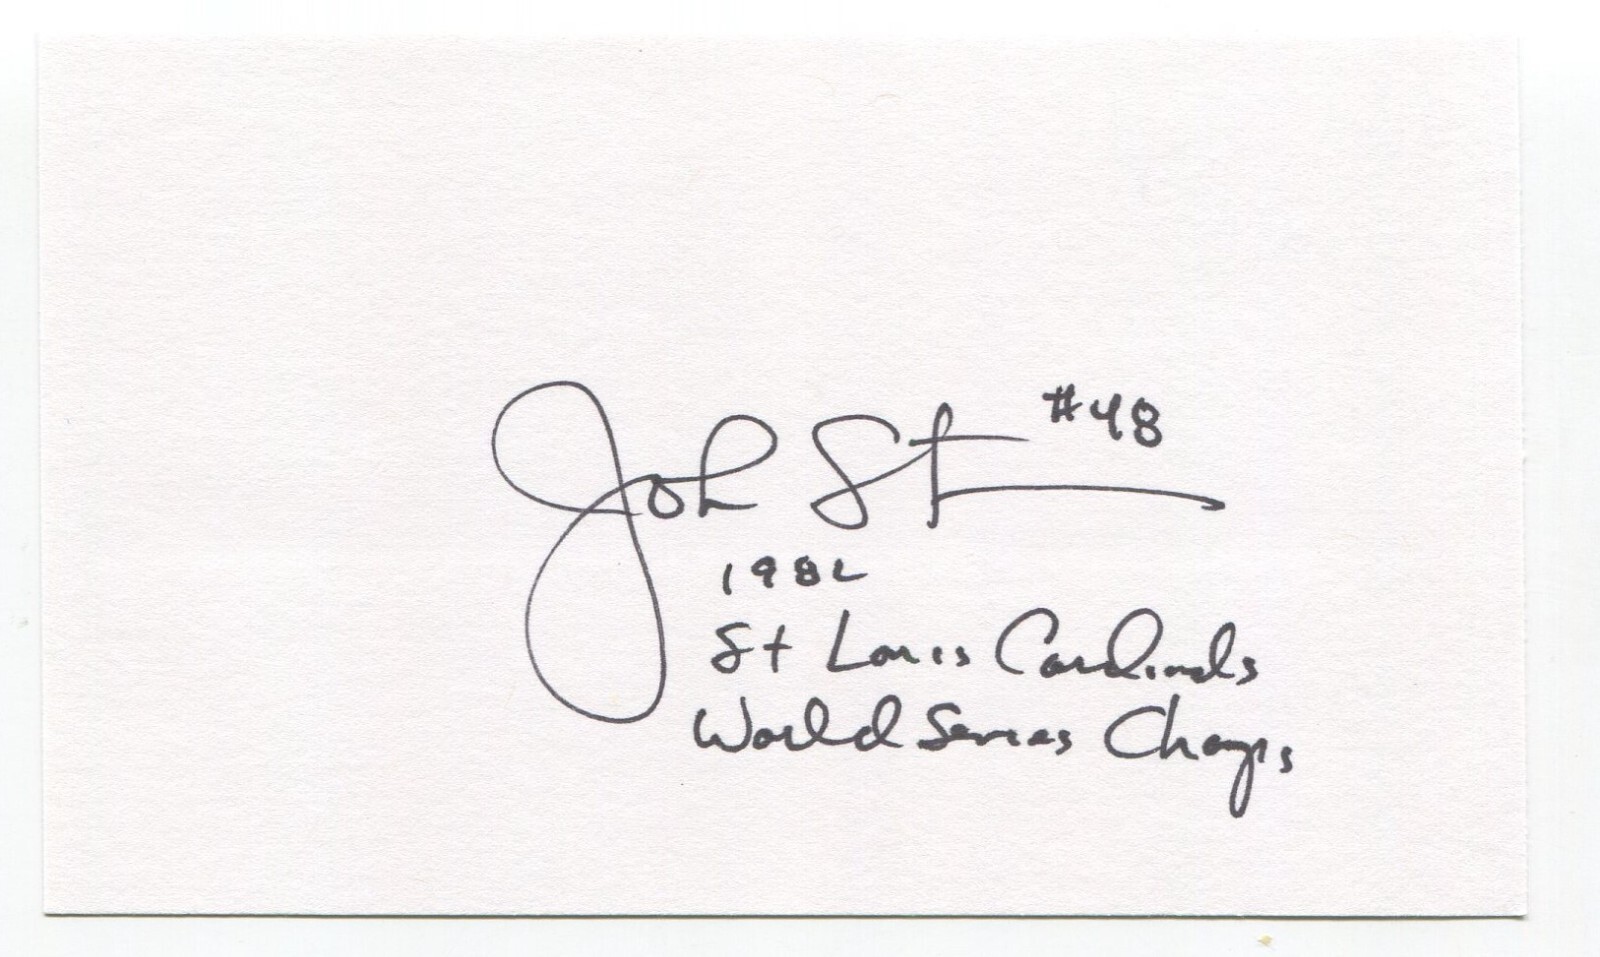 John St #48
1982
St Louis Cardinals
World Series Champs